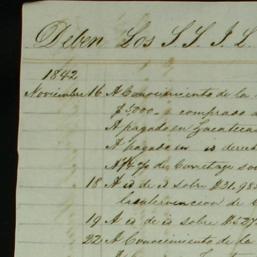 Deben Los S.S. J. L
1842
Noviembre 16 A Conocimiento de la
$5,000. comprado
A pagado en Zacatecas
A pagado en id derech
de Corretage so
18 A id de id sobre $21,98
la intervencion de
19 A id de id sobre $527
22 A Conocimiento de la